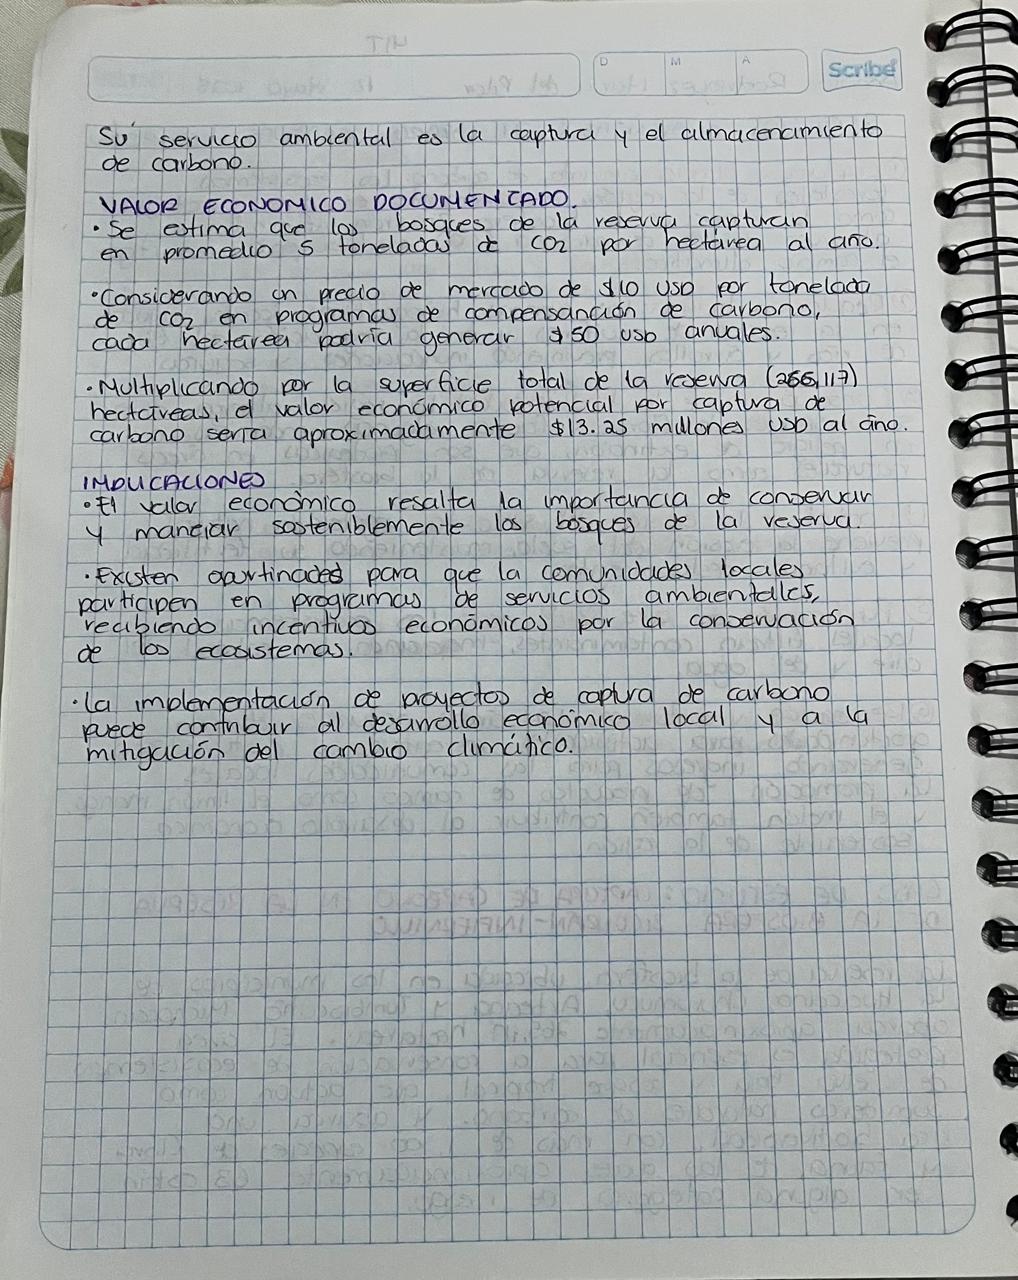 D M A Scribe
Su servicio ambiental es la captura y el almacenamiento
de carbono.
VALOR ECONOMICO DOCUMENTADO.
• Se estima que los bosques de la reserva capturan
en promedio 5 toneladas de CO2 por hectárea al año.
• Considerando un precio de mercado de $10 USD por tonelada
de CO2 en programas de compensanción de carbono,
cada hectárea podría generar $50 USD anuales.
• Multiplicando por la superficie total de la reserva (266,117)
hectáreas, el valor económico potencial por captura de
carbono sería aproximadamente $13.25 millones USD al año.
IMPLICACIONES
• El valor económico resalta la importancia de conservar
y manejar sosteniblemente los bosques de la reserva.
• Existen oportinades para que la comunidades locales
participen en programas de servicios ambientales,
recibiendo incentivos económicos por la conservación
de los ecosistemas.
• La implementación de proyectos de captura de carbono
puede contribuir al desarrollo económico local y a la
mitigación del cambio climático.